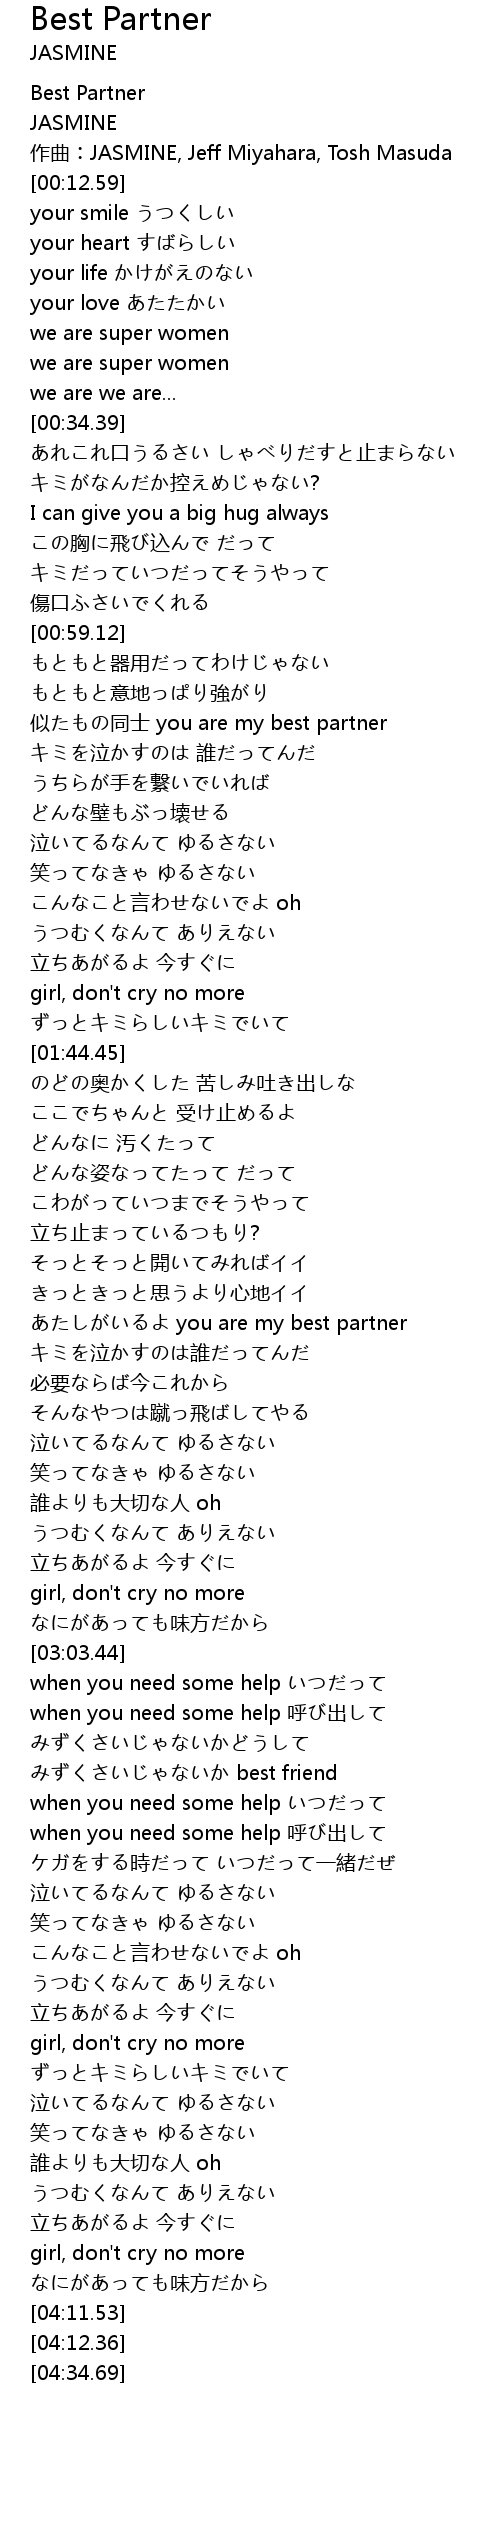 Best Partner
JASMINE
Best Partner
JASMINE
作曲：JASMINE, Jeff Miyahara, Tosh Masuda
[00:12.59]
your smile うつくしい
your heart すばらしい
your life かけがえのない
your love あたたかい
we are super women
we are super women
we are we are...
[00:34.39]
あれこれ口うるさい しゃべりだすと止まらない
キミがなんだか控えめじゃない?
I can give you a big hug always
この胸に飛び込んで だって
キミだっていつだってそうやって
傷口ふさいでくれる
[00:59.12]
もともと器用だってわけじゃない
もともと意地っぱり強がり
似たもの同士 you are my best partner
キミを泣かすのは 誰だってんだ
うちらが手を繋いでいれば
どんな壁もぶっ壊せる
泣いてるなんて ゆるさない
笑ってなきゃ ゆるさない
こんなこと言わせないでよ oh
うつむくなんて ありえない
立ちあがるよ 今すぐに
girl, don't cry no more
ずっとキミらしいキミでいて
[01:44.45]
のどの奥かくした 苦しみ吐き出しな
ここでちゃんと 受け止めるよ
どんなに 汚くたって
どんな姿なってたって だって
こわがっていつまでそうやって
立ち止まっているつもり?
そっとそっと開いてみればイイ
きっときっと思うより心地イイ
あたしがいるよ you are my best partner
キミを泣かすのは誰だってんだ
必要ならば今これから
そんなやつは蹴っ飛ばしてやる
泣いてるなんて ゆるさない
笑ってなきゃ ゆるさない
誰よりも大切な人 oh
うつむくなんて ありえない
立ちあがるよ 今すぐに
girl, don't cry no more
なにがあっても味方だから
[03:03.44]
when you need some help いつだって
when you need some help 呼び出して
みずくさいじゃないかどうして
みずくさいじゃないか best friend
when you need some help いつだって
when you need some help 呼び出して
ケガをする時だって いつだって一緒だぜ
泣いてるなんて ゆるさない
笑ってなきゃ ゆるさない
こんなこと言わせないでよ oh
うつむくなんて ありえない
立ちあがるよ 今すぐに
girl, don't cry no more
ずっとキミらしいキミでいて
泣いてるなんて ゆるさない
笑ってなきゃ ゆるさない
誰よりも大切な人 oh
うつむくなんて ありえない
立ちあがるよ 今すぐに
girl, don't cry no more
なにがあっても味方だから
[04:11.53]
[04:12.36]
[04:34.69]